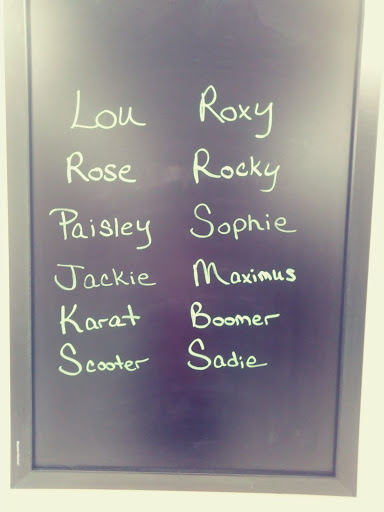 Lou Roxy
Rose Rocky
Paisley Sophie
Jackie Maximus
Karat Boomer
Scooter Sadie